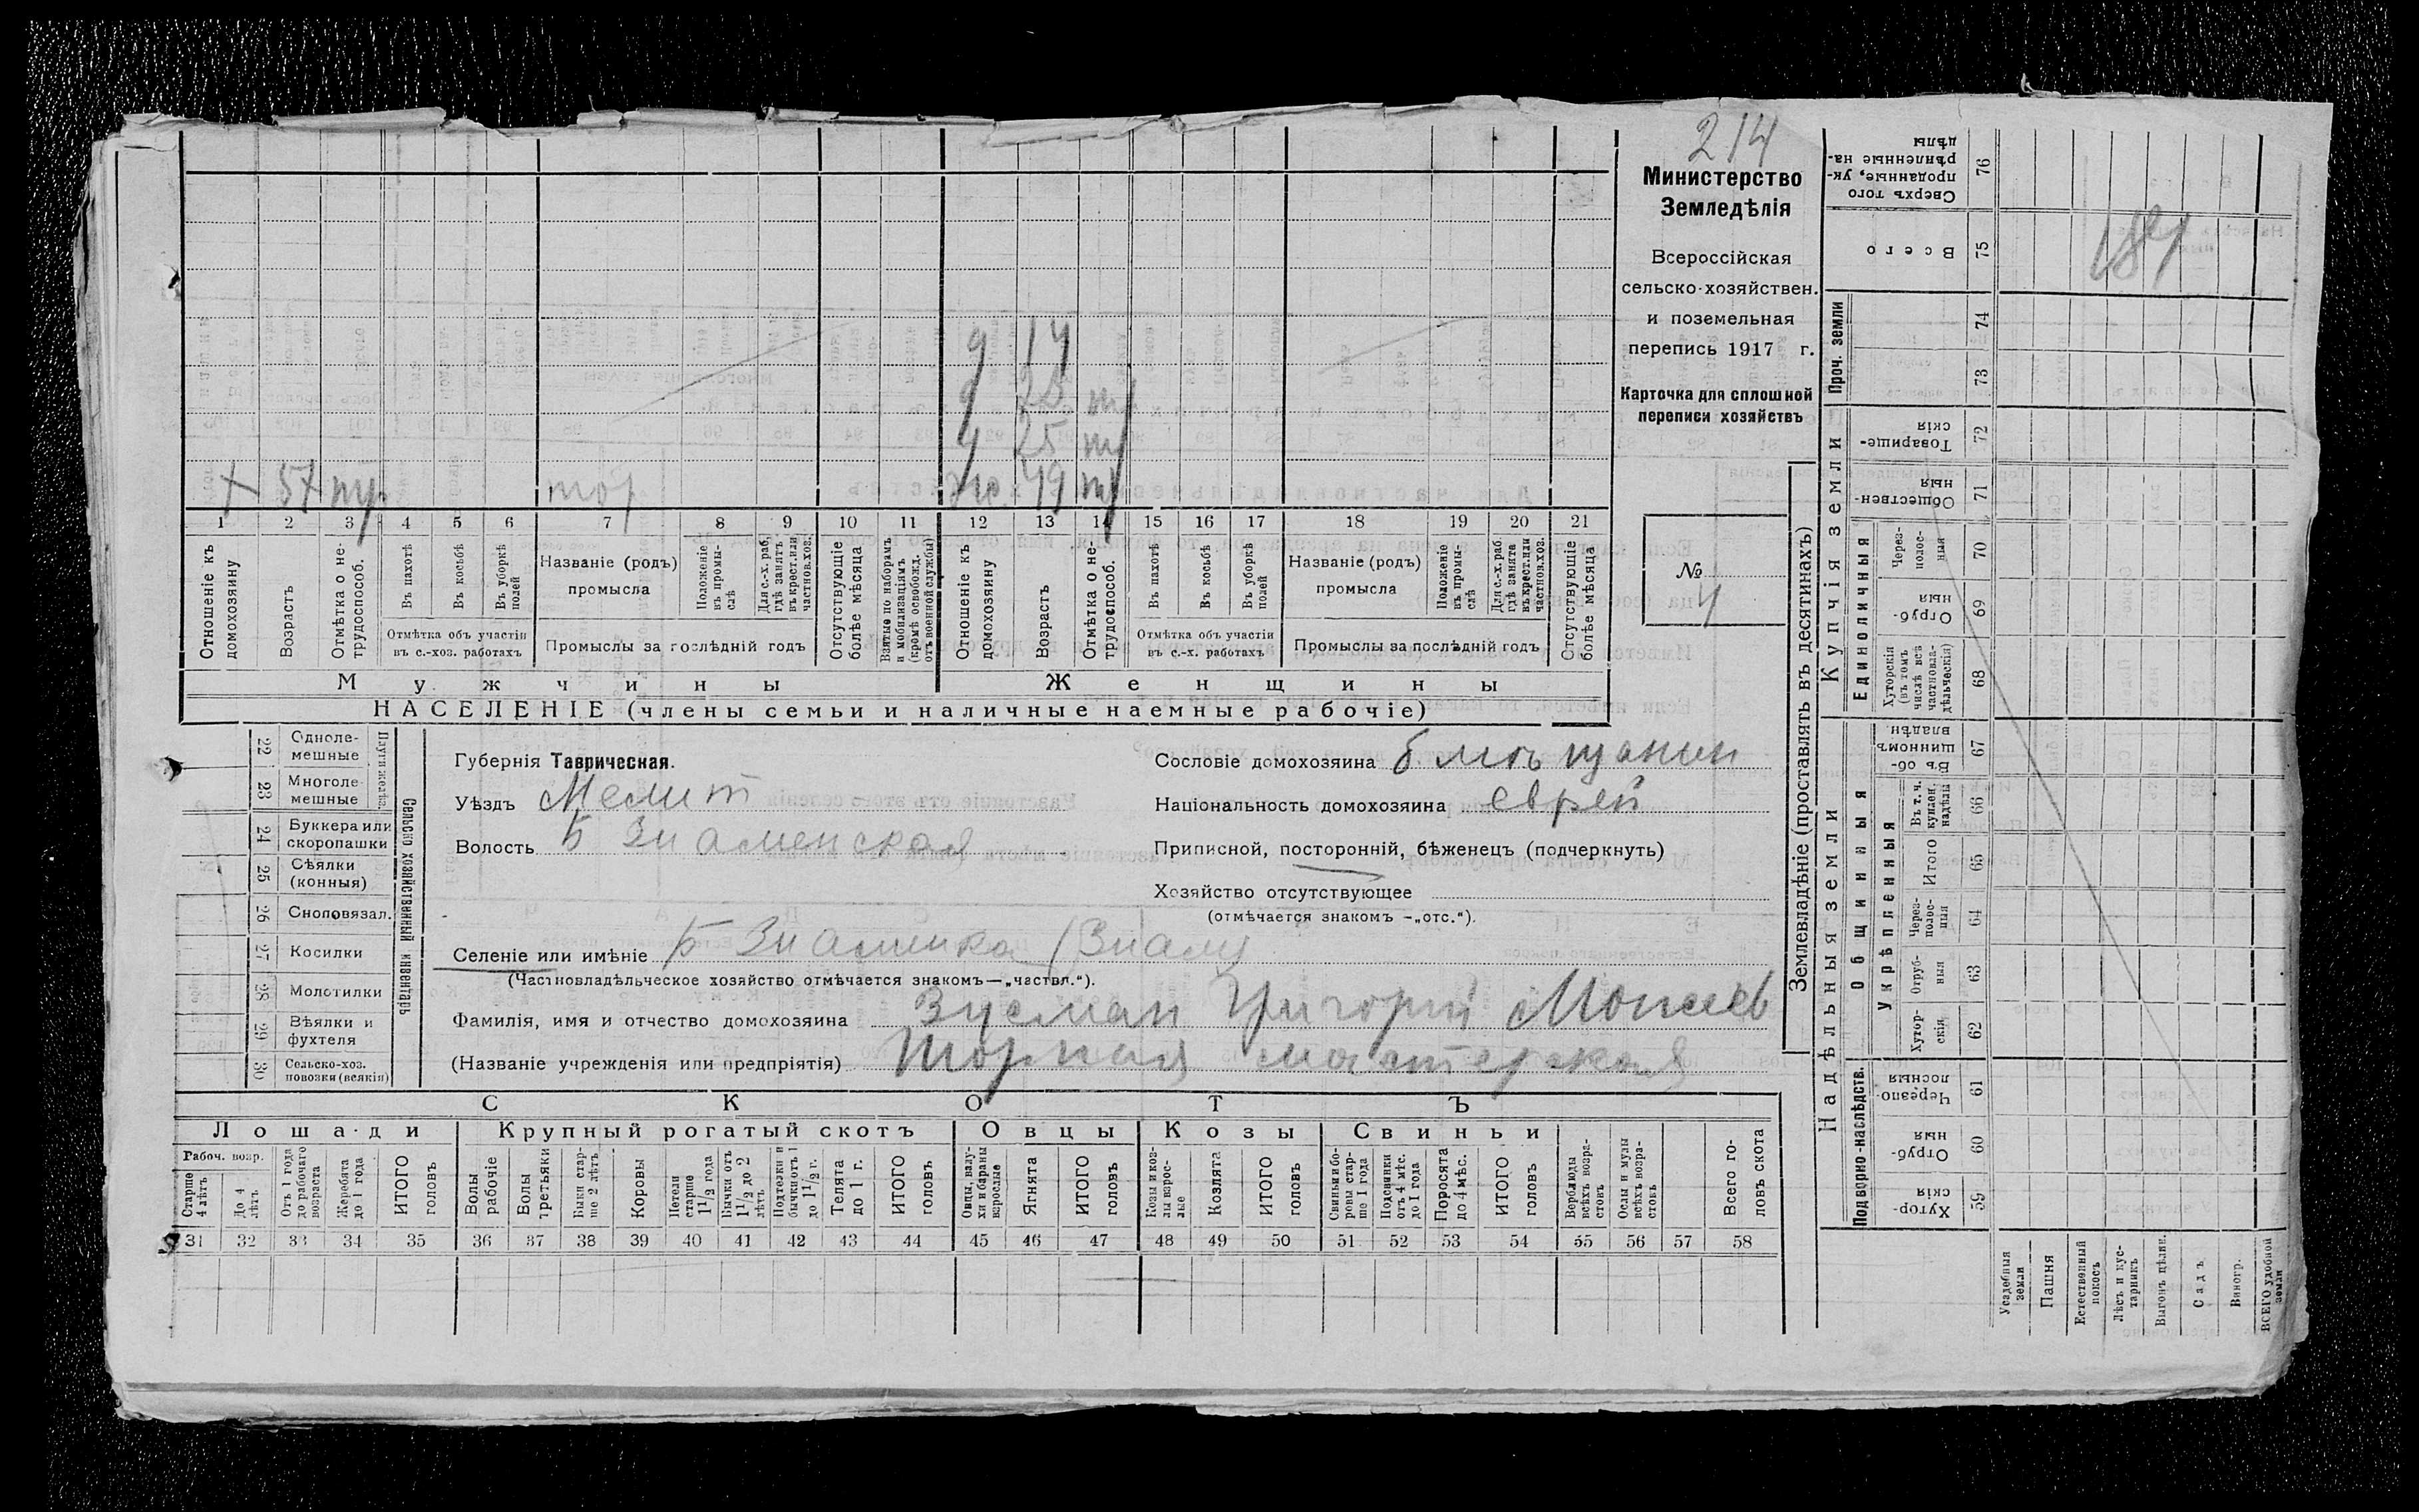 214
Министерство
Земледѣлія
Всероссійская
сельско-хозяйствен.
и поземельная
перепись 1917 г.
Карточка для сплошной
переписи хозяйствъ
№
4
187
д 14
д
д 25
х 57 тор жс. 49
1 2 3 4 5 6 7 8 9 10 11 12 13 14 15 16 17 18 19 20 21
Отношеніе къ домохозяину
Возрастъ
Отмѣтка о не-трудоспособ.
Въ пахотѣ
Въ косьбѣ
Въ уборкѣ полей
Отмѣтка объ участіи
въ с.-хоз. работахъ
Названіе (родъ)
промысла
Положеніе въ промы-слѣ
Для с.-х. раб. гдѣ занятъ въ крест. или частнов. хоз.
Промыслы за послѣдній годъ
Отсутствующіе болѣе мѣсяца
Взятые по наборамъ и мобилизаціямъ (кромѣ освобожд. отъ военной службы)
Отношеніе къ домохозяину
Возрастъ
Отмѣтка о не-трудоспособ.
Въ пахотѣ
Въ косьбѣ
Въ уборкѣ полей
Отмѣтка объ участіи
въ с.-х. работахъ
Названіе (родъ)
промысла
Положеніе въ промы-слѣ
Для с.-х. раб. гдѣ занята въ крест. или частнов. хоз.
Промыслы за послѣдній годъ
Отсутствующіе болѣе мѣсяца
Мужчины
Женщины
НАСЕЛЕНІЕ (члены семьи и наличные наемные рабочіе)
Сельско хозяйственный инвентарь
Плуги желѣз.
22 Одноле-мешные
23 Многоле-мешные
24 Буккера или скоропашки
25 Сѣялки (конныя)
26 Сноповязал.
27 Косилки
28 Молотилки
29 Вѣялки и фухтеля
30 Сельско-хоз. повозки (всякія)
Губернія Таврическая.
Уѣздъ Мелит
Волость Б Знаменская
Сословіе домохозяина б мѣщанин
Національность домохозяина еврей
Приписной, посторонній, бѣженецъ (подчеркнуть)
Хозяйство отсутствующее
(отмѣчается знакомъ —„отс.“).
Селеніе или имѣніе Б Знаменка (Знам)
(Частновладѣльческое хозяйство отмѣчается знакомъ—„частвл.“).
Фамилія, имя и отчество домохозяина Зусман Григорій Моисеев
(Названіе учрежденія или предпріятія) Шорная мастерская
СКОТЪ
Лошади Крупный рогатый скотъ Овцы Козы Свиньи
Рабоч. возр.
Старше 4 лѣтъ
До 4 лѣтъ
Отъ 1 года до рабочаго возраста
Жеребята до 1 года
ИТОГО головъ
Волы рабочіе
Волы третьяки
Быки стар-ше 2 лѣтъ
Коровы
Нетели старше 1 1/2 года
Бычки отъ 1 1/2 до 2 лѣтъ
Подтелки и бычки отъ 1 до 1 1/2 г.
Телята до 1 г.
ИТОГО головъ
Овцы, валу-хи и бараны взрослые
Ягнята
ИТОГО головъ
Козы и коз-лы взрос-лые
Козлята
ИТОГО головъ
Свиньи и бо-ровы стар-ше 1 года
Подсвинки отъ 4 мѣс. до 1 года
Поросята до 4 мѣс.
ИТОГО головъ
Верблюды всѣхъ возра-стовъ
Ослы и мулы всѣхъ возра-стовъ
Всего го-ловъ скота
31 32 33 34 35 36 37 38 39 40 41 42 43 44 45 46 47 48 49 50 51 52 53 54 55 56 57 58
Землевладѣніе (проставлять въ десятинахъ)
Надѣльныя земли
Купчія земли
Проч. земли
Подворно-наслѣдств.
Общинныя
Укрѣпленныя
Единоличныя
Хутор-скія 59
Отруб-ныя 60
Черезпо-лосныя 61
Хутор-скія 62
Отруб-ныя 63
Через-полос-ныя 64
Итого 65
Въ т. ч. куплен. надѣлы 66
Въ об-щинномъ владѣн. 67
Хуторскія (въ томъ числѣ всѣ частновла-дѣльческія) 68
Отруб-ныя 69
Через-полос-ныя 70
Обществен-ныя 71
Товарище-скія 72
73
74
Всего 75
Сверхъ того проданные, ук-рѣпленные на-дѣлы 76
Усадебныя земли
Пашня
Естественный покосъ
Лѣсъ и кус-тарникъ
Выгонъ цѣлин.
Садъ
Виногр.
ВСЕГО удобной земли